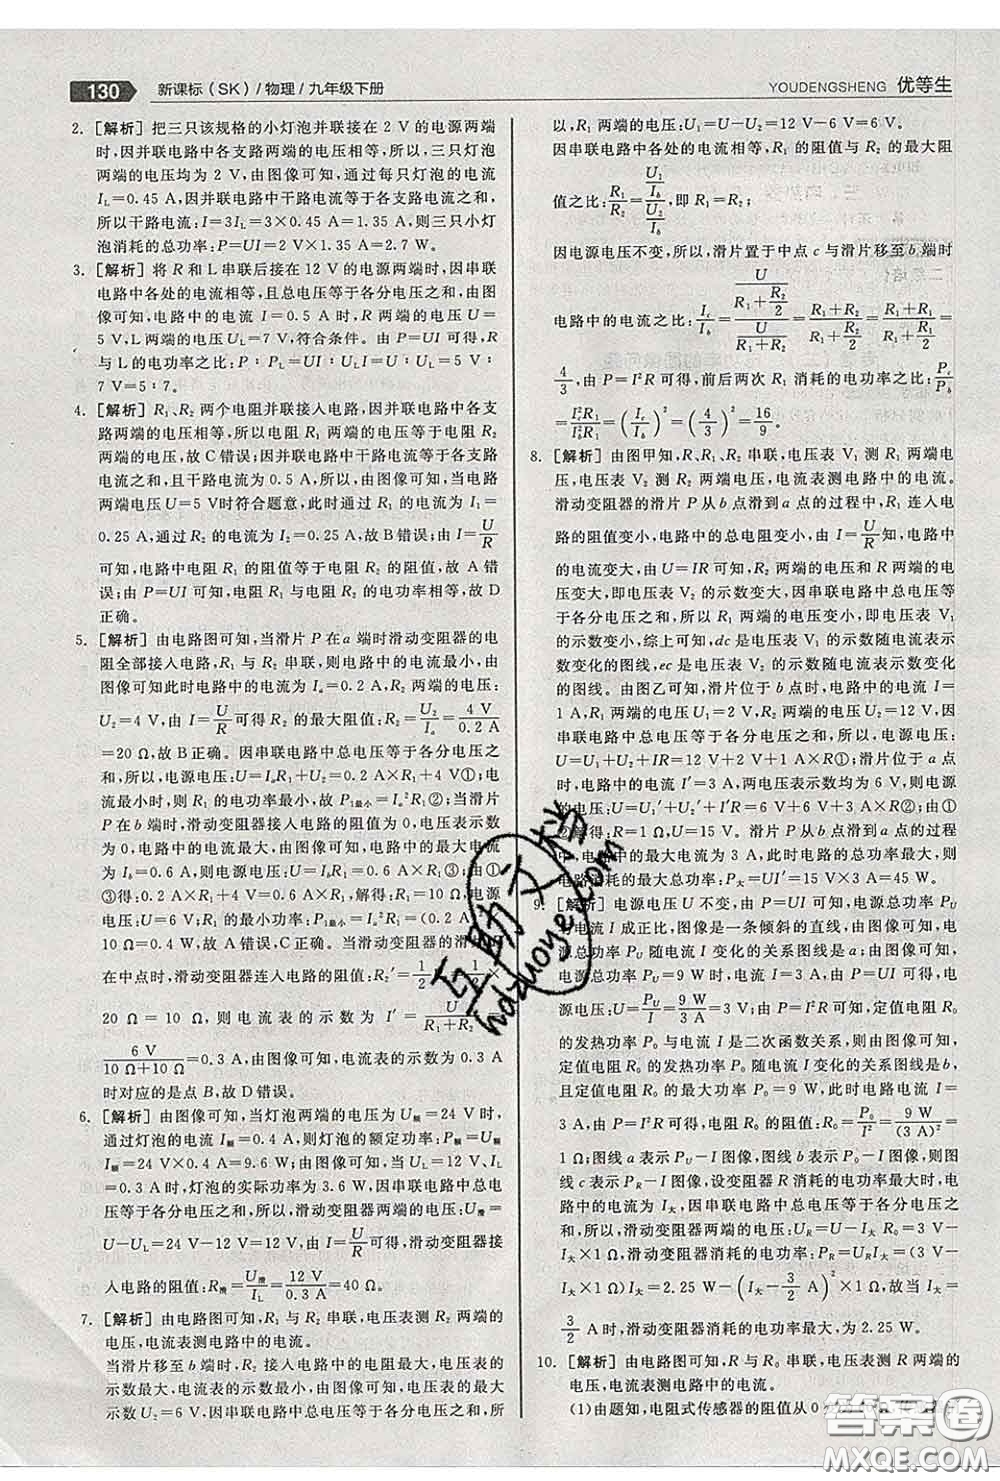 130 新课标(SK)/物理/九年级下册
YOUDENGSHENG 优等生
2. [解析] 把三只该规格的小灯泡并联接在 2 V 的电源两端
时，因并联电路中各支路两端的电压相等，所以，三只灯泡
两端的电压均为 2 V，由图像可知，通过每只灯泡的电流
I_L=0.45 A，因并联电路中干路电流等于各支路电流之和，
所以干路电流：I=3I_L=3×0.45 A=1.35 A，则三只小灯
泡消耗的总功率：P=UI=2 V×1.35 A=2.7 W。
3. [解析] 将 R 和 L 串联后接在 12 V 的电源两端时，因串联
电路中各处的电流相等，且总电压等于各分电压之和，由图
像可知，电路中的电流 I=0.5 A 时，R 两端的电压U_R=5
V，L 两端的电压U_L=7 V，符合条件。由 P=UI 可得，R
与 L 的电功率之比：P_R∶P_L=U_RI∶U_LI=U_R∶U_L=5 V∶
7 V=5∶7。
4. [解析] R₁、R₂ 两个电阻并联接入电路，因并联电路中各支
路两端的电压相等，所以电阻 R₁ 两端的电压等于电阻 R₂
两端的电压，故 C 错误；因并联电路中干路电流等于各支
路电流之和，且干路电流为 0.5 A，所以，由图可知，当电路
两端的电压 U=5 V时符合题意，此时，通过 R₁ 的电流为 I₁=
0.25 A，通过 R₂ 的电流为 I₂=0.25 A，故 B 错误；由 I=U/R
可知，电路中电阻 R₁ 的阻值等于电阻 R₂ 的阻值，故 A 错
误；由 P=UI 可知，电阻 R₁ 与电阻 R₂ 的电功率相等，故 D
正确。
5. [解析] 由电路图可知，当滑片 P 在 a 端时滑动变阻器的电
阻全部接入电路，R₁ 与 R₂ 串联，则电路中的电流最小，由
图像可知此时电路中的电流为 I_a=0.2 A，R₂ 两端的电压：
U₂=4 V，由 I=U/R可得 R₂ 的最大阻值：R₂=U₂/I_a=4 V/0.2 A
=20 Ω，故 B 正确。因串联电路中总电压等于各分电压之
和，所以，电源电压：U=I_aR₁+U₂=0.2 A×R₁+4 V①；电流
最小时，则 R₁ 的电功率最小，故 P₁最小=I_a²R₁②；当滑片
P 在 b 端时，滑动变阻器接入电路的阻值为 0，电压表示数
为 0，由图像可知，电压表示数为 0 时，电路中的电流最大
为 I_b=0.6 A，则电源电压：U=I_bR₁=0.6 A×R₁③；由①
③得：0.2 A×R₁+4 V=0.6 A×R₁，解得：R₁=10 Ω，电源
电压：U=6 V；R₁ 的最小功率：P₁最小=I_a²R₁=(0.2 A)²×
10 Ω=0.4 W，故 A 错误，C 正确。当滑动变阻器的滑片 P
在中点时，滑动变阻器连入电路的阻值：R₂′=1/2R₂=1/2×
20 Ω = 10 Ω，则电流表的示数为 I′=U/(R₁+R₂′)=
6 V/(10 Ω+10 Ω)=0.3 A，由图像可知，电流表的示数为 0.3 A
时对应的是点 B，故 D 错误。
6. [解析] 由图像可知，当灯泡两端的电压为 U额=24 V 时，
通过灯泡的电流 I额=0.4 A，则灯泡的额定功率：P额=U额
I额=24 V×0.4 A=9.6 W；当 U_L=12 V 时，由图像可知，
I_L=0.3 A 时，灯泡的实际功率为 3.6 W，因串联电路中总电
压等于各分电压之和，所以，滑动变阻器两端的电压：U滑=
U－U_L=24 V－12 V=12 V，由 I=U/R可得，滑动变阻器接
入电路的阻值：R滑=U滑/I_L=12 V/0.3 A=40 Ω。
7. [解析] 由电路图可知，R₁ 与 R₂ 串联，电压表测 R₂ 两端的
电压，电流表测电路中的电流。
当滑片移至 b 端时，R₂ 接入电路中的电阻最大，电压表的
示数最大，电路中的电流最小，由图像可知，电压表的最大
示数 U₂=6 V，因串联电路中总电压等于各分电压之和，所
以，R₁ 两端的电压：U₁=U－U₂=12 V－6 V=6 V。
因串联电路中各处的电流相等，R₁ 的阻值与 R₂ 的最大阻
值之比：R₁/R₂=(U₁/I_b)/(U₂/I_b)，即 R₁=R₂。
因电源电压不变，所以，滑片置于中点 c 与滑片移至 b 端时
电路中的电流之比：I_c/I_b=(U/(R₁+R₂/2))/(U/(R₁+R₂))=(R₁+R₂)/(R₁+R₂/2)=(R₁+R₁)/(R₁+R₁/2)=
4/3，由 P=I²R 可得，前后两次 R₁ 消耗的电功率之比：P_c/P_b
=I_c²R₁/I_b²R₁=(I_c/I_b)²=(4/3)²=16/9。
8. [解析] 由图甲可知，R、R₁、R₂ 串联，电压表 V₁ 测 R₁ 两端的电
压，电压表 V₂ 测 R₂ 两端电压，电流表测电路中的电流。
滑动变阻器的滑片 P 从 b 点滑到 a 点的过程中，R 连入电
路的阻值变小，电路中的总电阻变小，由 I=U/R可知，电路中
的电流变大，由 U=IR 可知，R₂ 两端的电压和 R 两端的电
压变大，即电压表 V₂ 的示数变大，因串联电路中总电压等
于各分电压之和，所以 R₁ 两端的电压变小，即电压表 V₁
的示数变小，综上可知，dc 是电压表 V₁ 的示数随电流表示
数变化的图线，ec 是电压表 V₂ 的示数随电流表示数变化
的图线。由图乙可知，滑片位于 b 点时，电路中的电流 I=
1 A，R₁ 两端的电压 U₁=2 V，R₂ 两端的电压 U₂=12 V，
因串联电路中总电压等于各分电压之和，所以，电源电压：
U=U₁+U₂+IR=12 V+2 V+1 A×R①；滑片位于 a 点
时，电路中的电流 I′=3 A，两电压表示数均为 6 V，则电源
的电压：U=U₁′+U₂′+I′R=6 V+6 V+3 A×R②；由①
②解得：R=1 Ω，U=15 V。滑片 P 从 b 点到 a 点的过程
中，电路中的最大电流为 3 A，此时电路的总功率最大，则
电路消耗的最大功率：P大=UI′=15 V×3 A=45 W。
9. [解析] 电源电压 U 不变，由 P=UI 可知，电源总功率 P_U
与电流 I 成正比，图像是一条倾斜的直线，由图像可知，电
源总功率 P_U 随电流 I 变化的关系图线是 a；由图像可知，
电源总功率 P_U=9 W 时，电流 I=3 A，由 P=UI 可得，电
源电压：U=P_U/I=9 W/3 A=3 V；由 P=I²R 可知，定值电阻 R₀
的发热功率 P₀ 与电流 I 是二次函数关系，由图像可知，
定值电阻 R₀ 的发热功率 P₀ 随电流 I 变化的关系图线是 b，
且定值电阻 R₀ 的最大功率 P₀=9 W，此时对应的电流 I=
3 A，由 P=I²R 可得，电阻 R₀ 的阻值：R₀=P₀/I²=9 W/(3 A)²=
1 Ω；图线 a 表示 P_U－I 图像，图线 b 表示 P₀－I 图像，则图
线 c 表示 P_R－I 图像，设变阻器 R 消耗的电功率最大时，
电流为 I大，因串联电路中总电压等于各分电压之和，由
I=U/R可得，滑动变阻器两端的电压：U_R=U－I大R₀=3 V－
I大×1 Ω，滑动变阻器消耗的电功率：P_R=U_RI大=(3 V－
I大×1 Ω)I大=2.25 W－(I大－3/2 A)²×1 Ω，故当 I大=
3/2 A 时，滑动变阻器消耗的电功率最大，为 2.25 W。
10. [解析] 由电路图可知，R 与 R₀ 串联，电压表测 R 两端的
电压，电流表测电路中的电流。
(1)由题知，电阻式传感器的阻值从 0
互助文档
hdzuoye.com
答案圈
MXQE.COM